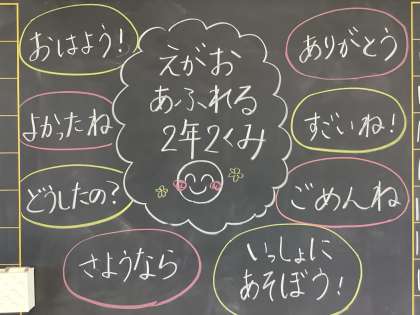 えがお
あふれる
2年2くみ
おはよう!
よかったね
どうしたの?
さようなら
ありがとう
すごいね!
ごめんね
いっしょに
あそぼう!